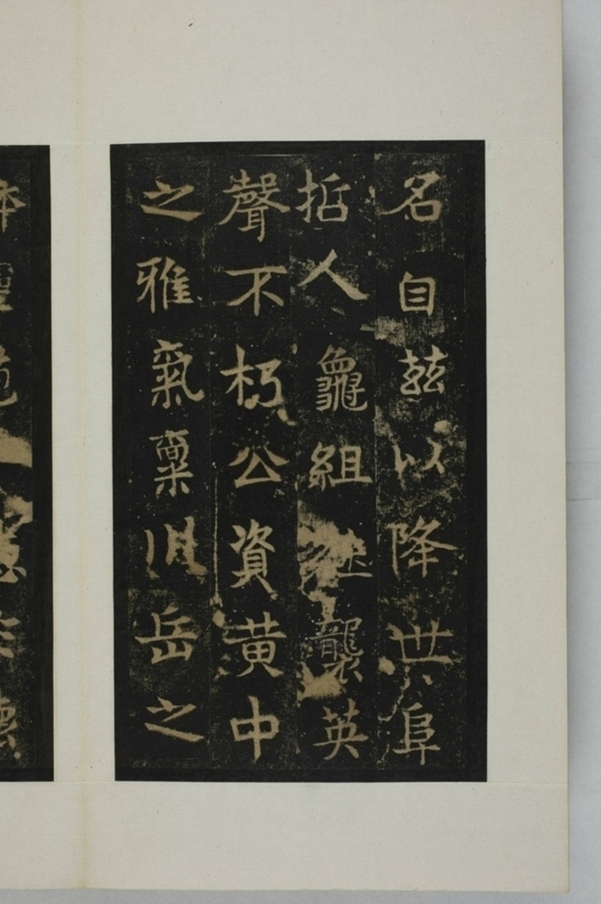 名自茲以降世阜
哲人龜組㳂襲英
聲不朽公資黃中
之雅氣稟川岳之